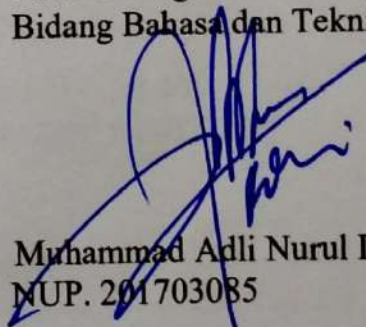 Bidang Bahasa dan Tekn
Muhammad Adli Nurul I
NUP. 201703085